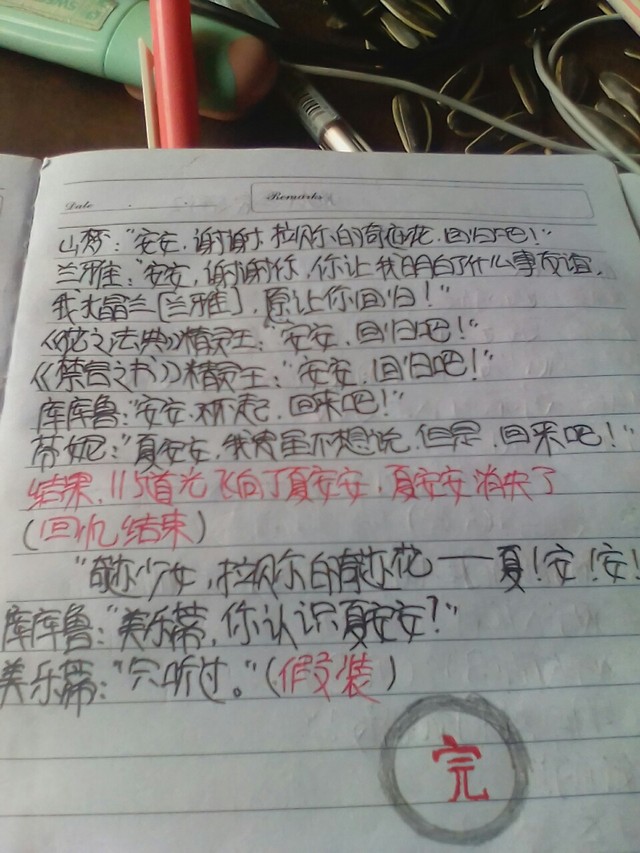 Date
Remarks
山梦:“安安,谢谢,拉贝尔的奇迹花,回归吧!”
兰雅:“安安,谢谢你,你让我明白了什么事友谊,
我水晶兰[兰雅],愿让你回归!”
《花之法典》精灵王:“安安,回归吧!”
《禁言之书》精灵王:“安安,回归吧!”
库库鲁:“安安,对不起,回来吧!”
蒂妮:“夏安安,我虽不想说,但是,回来吧!”
结果,115道光飞向了夏安安,夏安安消失了
(回忆结束)
“奇迹少女,拉贝尔的奇迹花——夏!安!安!
库库鲁:“美乐蒂,你认识夏安安?”
美乐蒂:“只听过。”(假装)
完